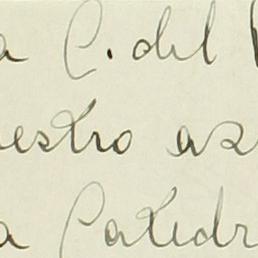 a C. del
estro as
a Catedr